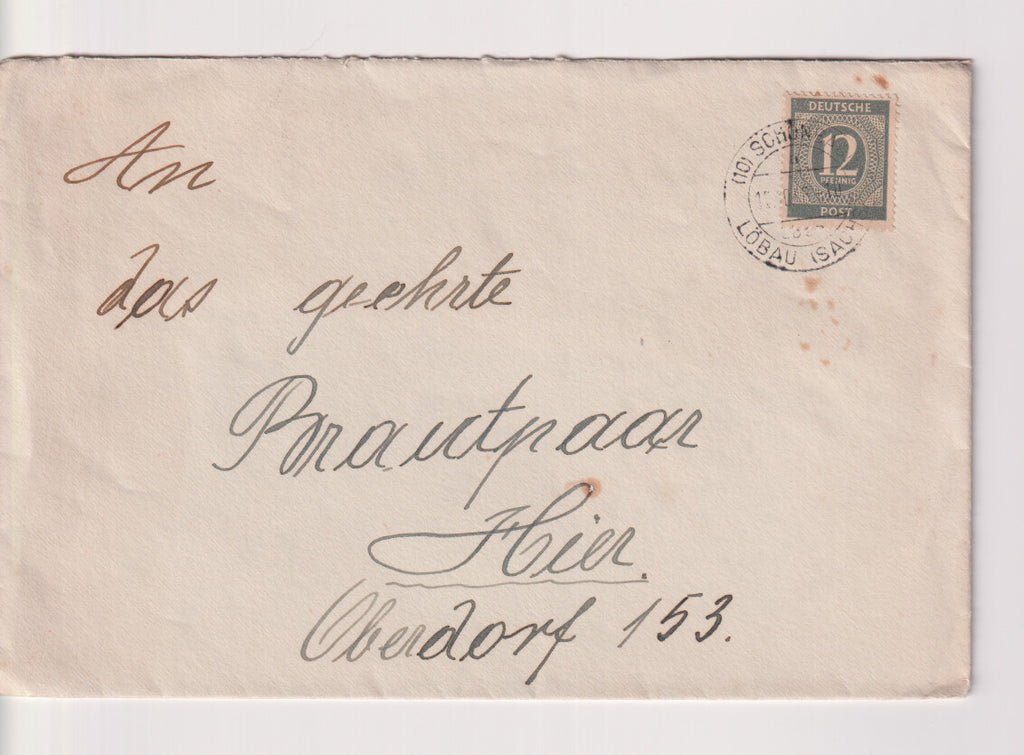 An
das geehrte
Brautpaar
Hier.
Oberdorf 153.
DEUTSCHE
12
PFENNIG
POST
(10) SCHÖN
LÖBAU (SACH